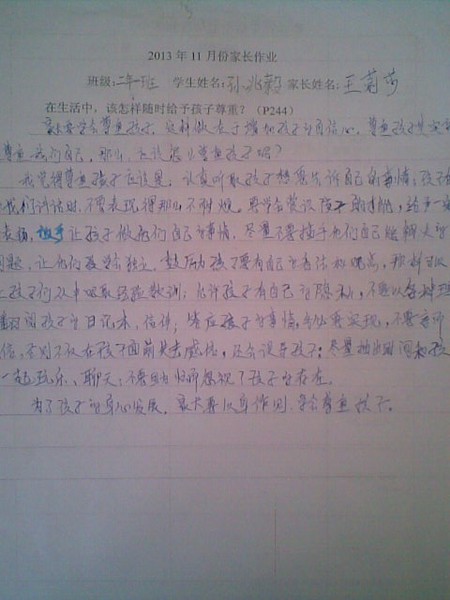 2013 年 11 月份家长作业
班级: 二年一班 学生姓名: 孙兆毅 家长姓名: 王菊莎
在生活中，该怎样随时给予孩子尊重？（P244）
家长要学会尊重孩子，这样做有于增加孩子的自信心，尊重孩子是
尊重我们自己，那么，应该怎么尊重孩子呢？
我觉得尊重孩子应该是：认真听取孩子想告诉自己的事情，孩子在
我们讲话时，不要表现得那么不耐烦。要学会赏识孩子的才能，给予
表扬，让孩子做我们自己的事情。尽量不要插手他们自己能解决的
问题，让他们学会独立。鼓励孩子要有自己的看法和观点，
孩子们从中吸取经验教训；允许孩子有自己的隐私，不要以各种理
翻阅孩子的日记本，信件；答应孩子的事情，实现，不要言而
信，否则不仅在孩子面前失去威信，还会误导孩子；尽量抽出时间和孩
一起玩乐、聊天；不要因为忙而忽视了孩子的存在。
为了孩子的身心发展，家长要以身作则，学会尊重孩子。